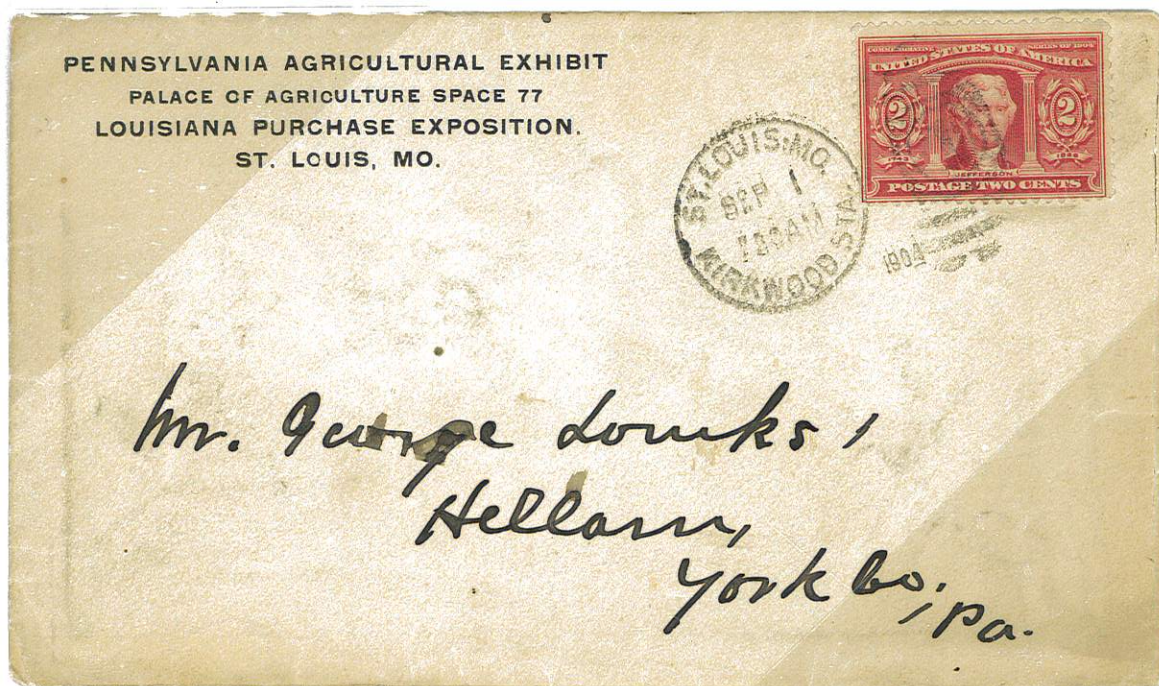 PENNSYLVANIA AGRICULTURAL EXHIBIT
PALACE OF AGRICULTURE SPACE 77
LOUISIANA PURCHASE EXPOSITION.
ST. LOUIS, MO.
COMMEMORATIVE SERIES OF 1904
UNITED STATES OF AMERICA
2 2
1803
JEFFERSON
POSTAGE TWO CENTS
ST. LOUIS, MO.
SEP 1
AM
KIRKWOOD STA.
1904
Mr. George Loucks,
Hellam,
York Co.,
Pa.